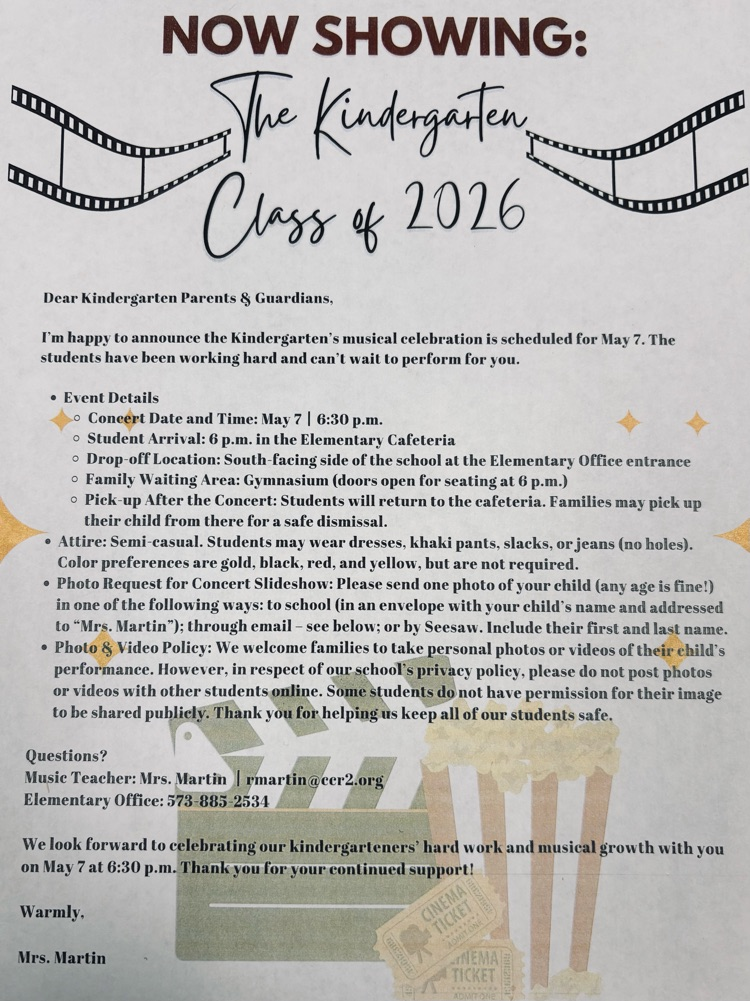 NOW SHOWING:
The Kindergarten
Class of 2026
Dear Kindergarten Parents & Guardians,
I'm happy to announce the Kindergarten's musical celebration is scheduled for May 7. The
students have been working hard and can't wait to perform for you.
• Event Details
◦ Concert Date and Time: May 7 | 6:30 p.m.
◦ Student Arrival: 6 p.m. in the Elementary Cafeteria
◦ Drop-off Location: South-facing side of the school at the Elementary Office entrance
◦ Family Waiting Area: Gymnasium (doors open for seating at 6 p.m.)
◦ Pick-up After the Concert: Students will return to the cafeteria. Families may pick up
their child from there for a safe dismissal.
• Attire: Semi-casual. Students may wear dresses, khaki pants, slacks, or jeans (no holes).
Color preferences are gold, black, red, and yellow, but are not required.
• Photo Request for Concert Slideshow: Please send one photo of your child (any age is fine!)
in one of the following ways: to school (in an envelope with your child's name and addressed
to "Mrs. Martin"); through email – see below; or by Seesaw. Include their first and last name.
• Photo & Video Policy: We welcome families to take personal photos or videos of their child's
performance. However, in respect of our school's privacy policy, please do not post photos
or videos with other students online. Some students do not have permission for their image
to be shared publicly. Thank you for helping us keep all of our students safe.
Questions?
Music Teacher: Mrs. Martin | rmartin@ccr2.org
Elementary Office: 573-885-2534
We look forward to celebrating our kindergarteners' hard work and musical growth with you
on May 7 at 6:30 p.m. Thank you for your continued support!
Warmly,
Mrs. Martin
CINEMA
TICKET
CINEMA
TICKET